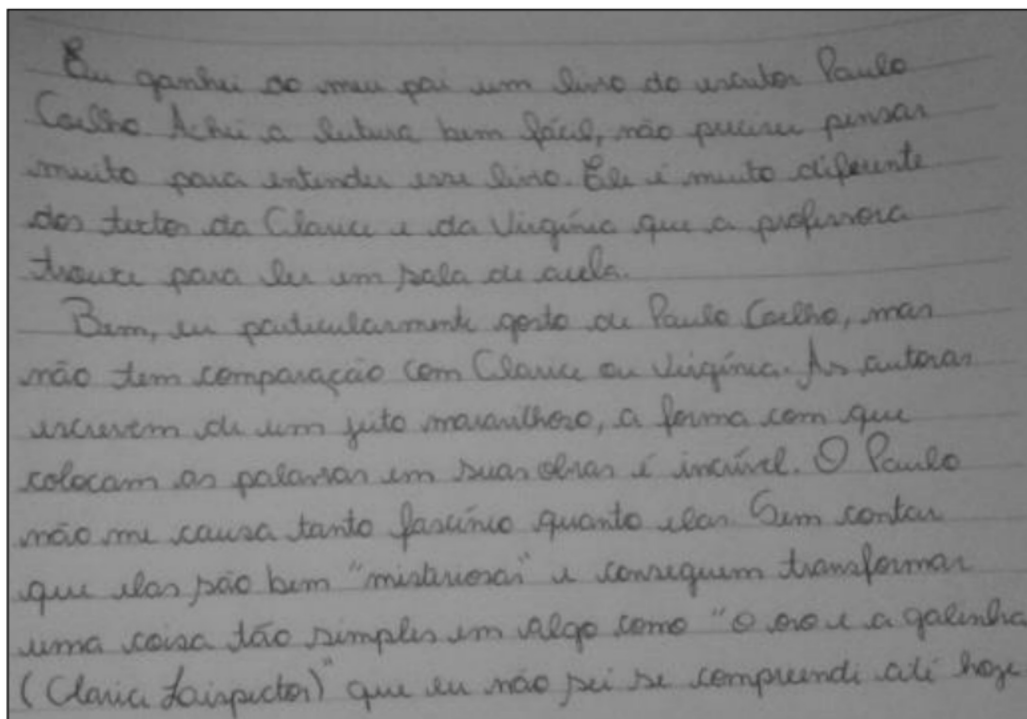 Eu ganhei do meu pai um livro do escritor Paulo
Coelho. Achei a leitura bem fácil, não precisei pensar
muito para entender esse livro. Ele é muito diferente
dos textos da Clarice e da Virgínia que a professora
trouxe para ler em sala de aula.
Bem, eu particularmente gosto de Paulo Coelho, mas
não tem comparação com Clarice ou Virgínia. As autoras
escrevem de um jeito maravilhoso, a forma com que
colocam as palavras em suas obras é incrível. O Paulo
não me causa tanto fascínio quanto elas. Sem contar
que elas são bem "misteriosas" e conseguem transformar
uma coisa tão simples em algo como "O ovo e a galinha
(Clarice Laispector)" que eu não sei se compreendi até hoje